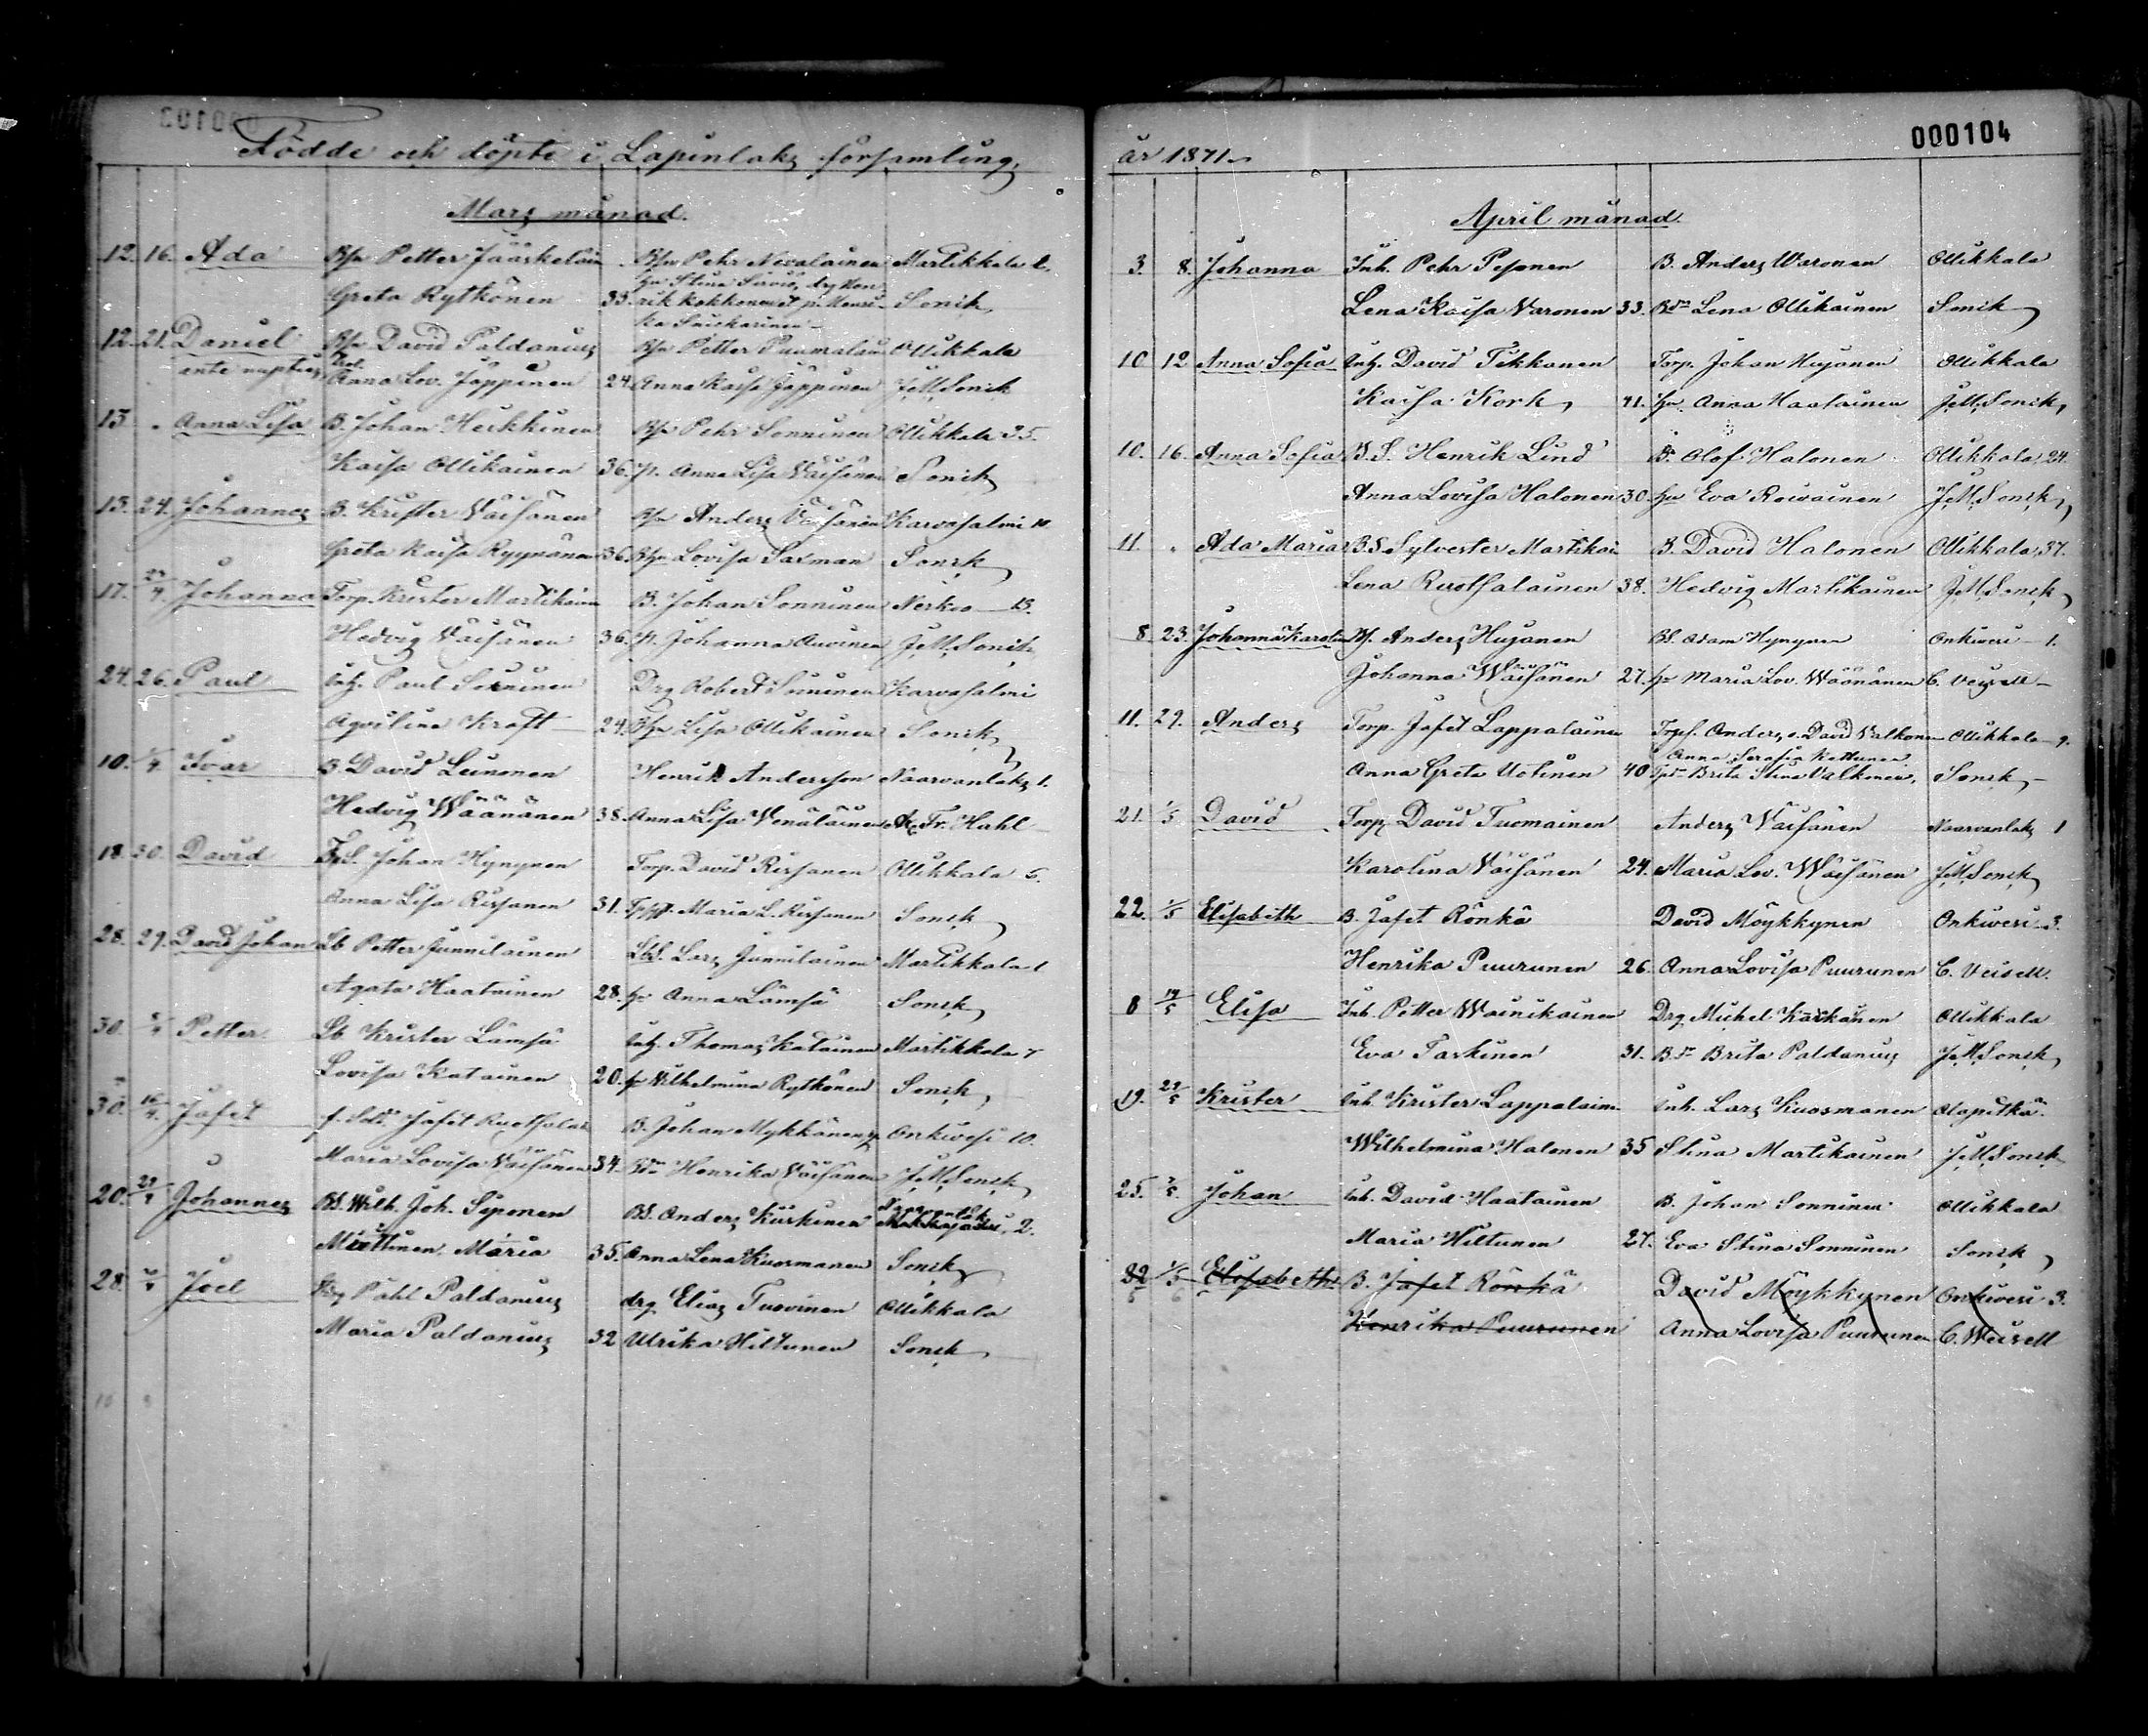 Födde och döpte i Lapinlaks församling,
Mars månad.
12. 16. Ada Petter Jääskeläin Pehr Nevalainen Martikkala
Greta Rytkönen 33. rik Kokkonen Sonck
12. 21. Daniel David Paldanius Petter Puumalain Ollikkala
ante nuptias Anna Lov. Jäppinen 24. Anna Kaisa Jäppinen J.M. Sonck
13. " Anna Lisa B. Johan Heikkinen Pehr Sonninen Ollikkala 25.
Kaisa Ollikainen 36. Anna Lisa Väisänen Sonck
15. 24. Johannes B. Krister Väisänen Anders Väisänen Karvasalmi 10
Greta Kaisa Ryynänen 36. Lovisa Saxman Sonck
17. Johanna Torp. Krister Martikain B. Johan Sonninen Nerkoo 13.
Hedvig Väisänen 36. Johanna Auvinen J.M. Sonck
24. 26. Paul Inh. Paul Sonninen Drg Robert Sonninen Karvasalmi
Agvilina Kroft 24. Lisa Ollikainen Sonck
10. Ivar B. David Leinonen Henrik Andersson Naarvanlaks 1.
Hedvig Wäänänen 38. Anna Lisa Venäläinen Fr. Hahl
18. 30. David Johan Hynynen Torp. David Rissanen Ollikkala 5.
Anna Lisa Rissanen 31. Maria L. Rissanen Sonck
28. 29. David Johan Lb Petter Junnilainen LbS. Lars Junnilainen Martikkala 1
Agata Haatainen 28. Anna Lämsä Sonck
30. Petter Lb Krister Lämsä Inh. Thomas Katainen Martikkala 7
Lovisa Katainen 20. Wilhelmina Rytkönen Sonck
30. 16/4. Jafet f. Sold. Jafet Ruotsalai B. Johan Mykkänen Onkivesi 10.
Maria Lovisa Väisänen 34. Henrika Väisänen J.M. Sonck
20. Johannes BS. Wilh. Joh. Siponen BS. Anders Kärkinen 2.
Miettinen Maria 35. Anna Lena Kuosmanen Sonck
28. Joel Drg Påhl Paldanius drg Elias Tuovinen Ollikkala
Maria Paldanius 32 Ulrika Hiltunen Sonck
år 1871.
000104
April månad.
3. 8. Johanna Inh. Pehr Pesonen B. Anders Varonen Ollikkala
Lena Kaisa Varonen 33. Lena Ollikainen Sonck
10 12 Anna Sofia Inh. David Tikkanen Torp. Johan Hujanen Ollikkala
Kaisa Kork 41. Anna Haatainen J.M. Sonck
10. 16. Anna Sofia B.S. Henrik Lind Olof Halonen Ollikkala, 24.
Anna Lovisa Halonen 30. Eva Roivainen J.M. Sonck
11. " Ada Maria B.S Sylvester Martikai B. David Halonen Ollikkala, 37.
Lena Ruotsalainen 38. Hedvig Martikainen J.M. Sonck
8. 23. Johanna Karolin Anders Hujanen BS. Adam Hynynen Onkivesi 1.
Johanna Wäisänen 27. Maria Lov. Wäänänen C. Veisell
11. 29. Anders Torp. Jafet Lappalainen Anders o. David Valkonen Ollikkala 9.
Anna Serafia Kettunen
Anna Greta Uotinen 40 Brita Stina Valkonen, Sonck
21. 1/5 David Torp. David Tuomainen Anders Väisänen Naarvanlaks 1
Karolina Väisänen 24. Maria Lov. Wäisänen J.M. Sonck
22. 1/5 Elisabeth B. Jafet Rönkä David Möykkynen Onkivesi 3.
Henrika Puurunen 26. Anna Lovisa Puurunen C. Veisell.
8 14/5 Elisa Inh. Petter Wainikainen Drg Michel Kärkäinen Ollikkala
Eva Tarkinen 31. Brita Paldanius J.M. Sonck
19. Krister Inh. Krister Lappalain Inh. Lars Kuosmanen Alapitkä.
Wilhelmina Halonen 35 Stina Martikainen J.M. Sonck
25. Johan Inh. David Haatainen B. Johan Sonninen Ollikkala
Maria Hiltunen 27. Eva Stina Sonninen Sonck
22 Elisabeth B. Jafet Rönkä David Möykkynen Onkivesi 3.
Henrika Puurunen Anna Lovisa Puurunen C. Weisell